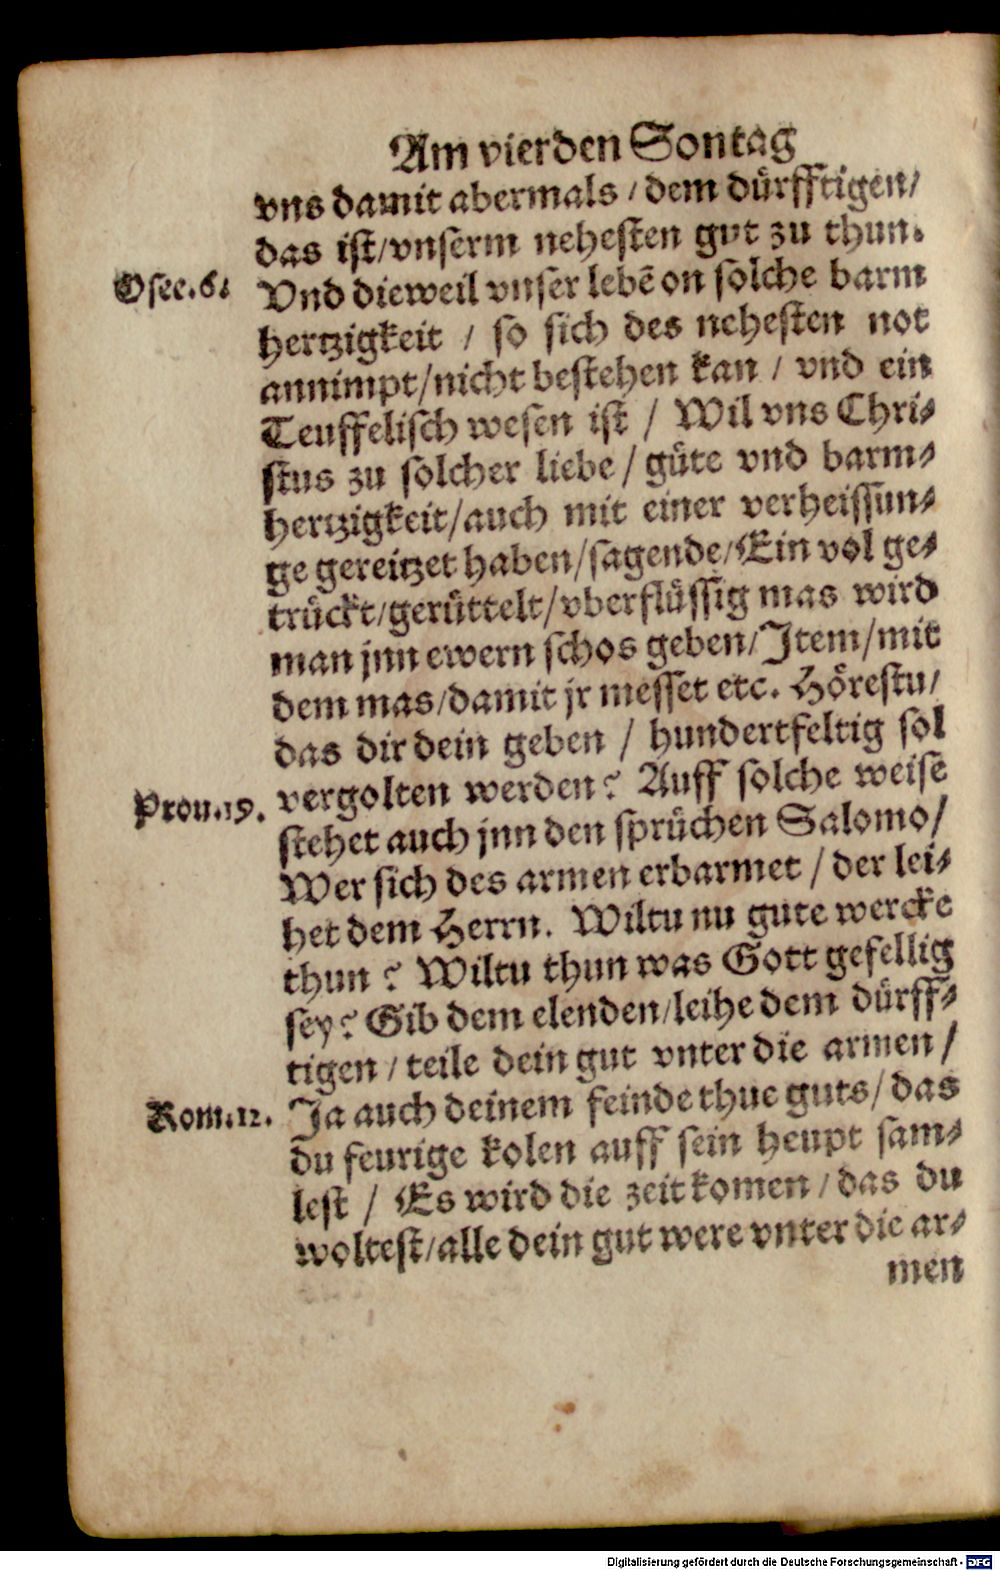 Am vierden Sontag
vns damit abermals / dem dürfftigen /
das ist / vnserm nehesten gut zu thun.
Osee.6. Vnd dieweil vnser lebē on solche barm
hertzigkeit / so sich des nehesten not
annimpt / nicht bestehen kan / vnd ein
Teuffelisch wesen ist / Wil vns Chri⸗
stus zu solcher liebe / güte vnd barm⸗
hertzigkeit / auch mit einer verheissun⸗
ge gereitzet haben / sagende / Ein vol ge⸗
trückt / gerüttelt / vberflüssig mas wird
man jnn ewern schos geben / Item / mit
dem mas / damit jr messet etc. Hörestu /
das dir dein geben / hundertfeltig sol
Prou.19. vergolten werden? Auff solche weise
stehet auch jnn den sprüchen Salomo /
Wer sich des armen erbarmet / der lei⸗
het dem Herrn. Wiltu nu gute wercke
thun? Wiltu thun was Gott gefellig
sey? Gib dem elenden / leihe dem dürff⸗
tigen / teile dein gut vnter die armen /
Rom.12. Ja auch deinem feinde thue guts / das
du feurige kolen auff sein heupt sam⸗
lest / Es wird die zeit komen / das du
woltest / alle dein gut were vnter die ar⸗
men
Digitalisierung gefördert durch die Deutsche Forschungsgemeinschaft - DFG